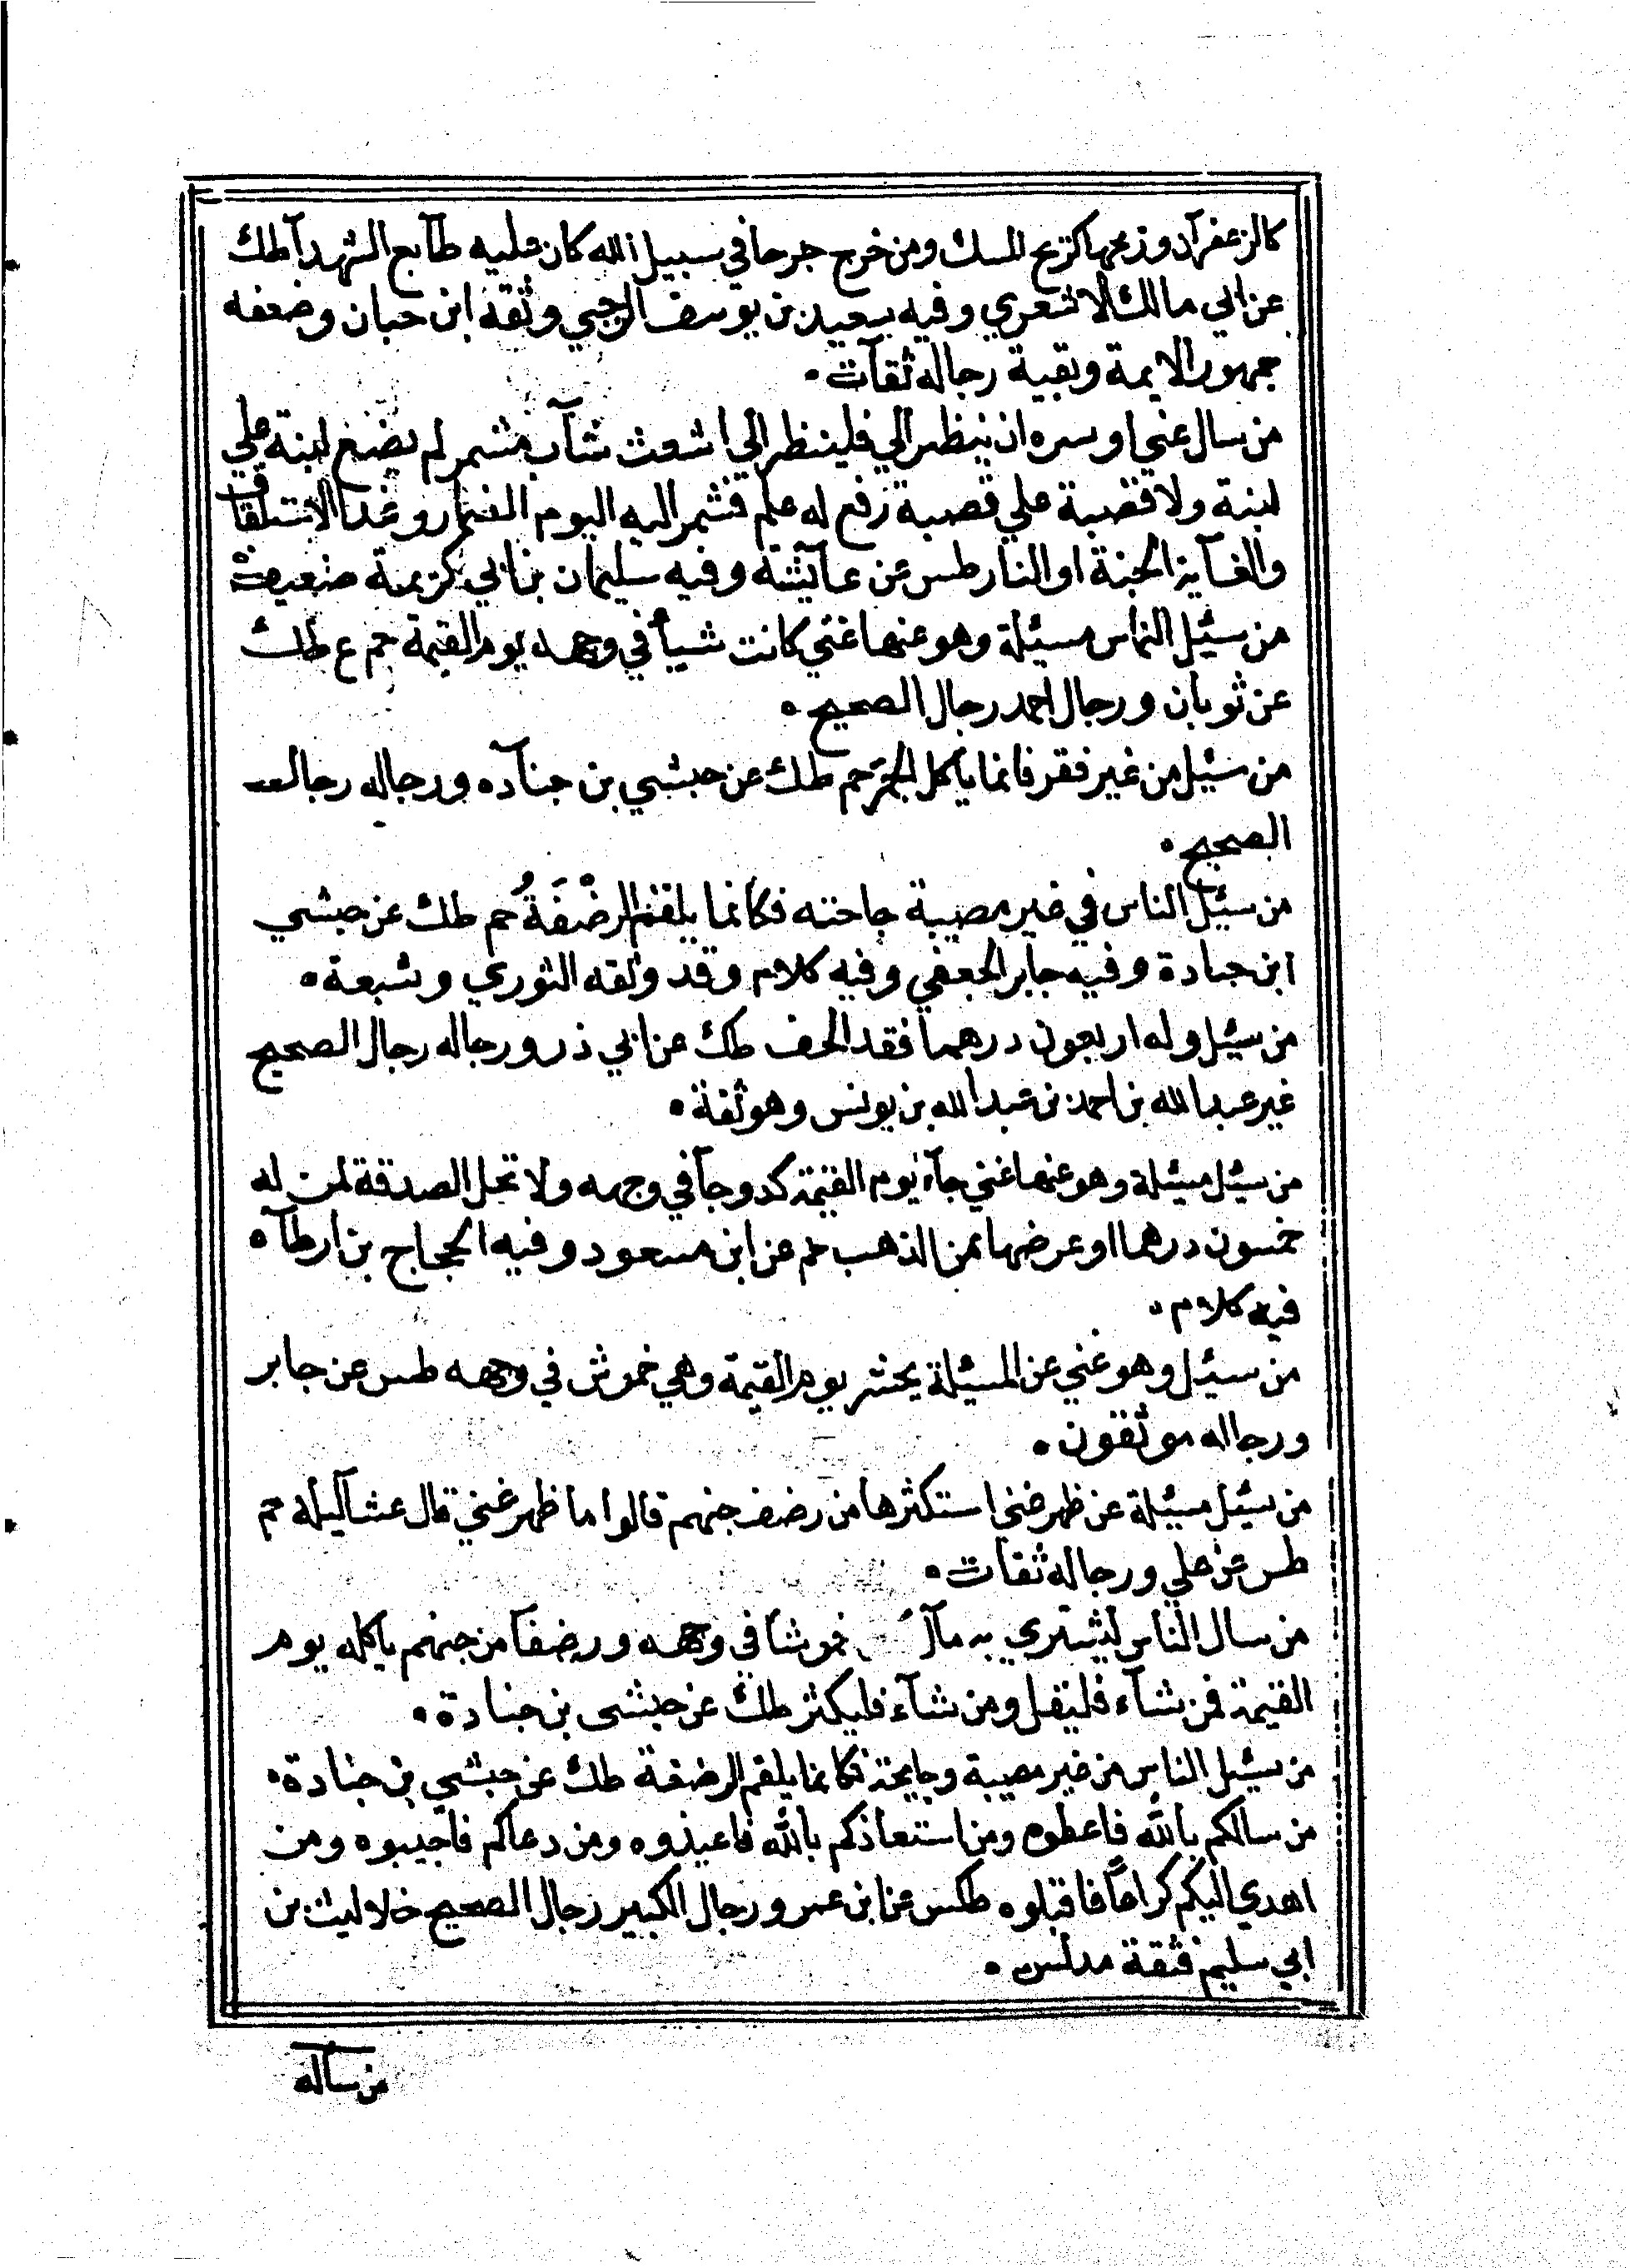 كالزعفرآن وريحها كريح المسك ومن خرج جرحا في سبيل الله كان عليه طآبع الشهدآ طك
عن ابي مالك الاشعري وفيه سعيد بن يوسف الرحبي وثقه ابن حبان وضعفه
جمهور الايمة وبقية رجاله ثقآت
من سال عني او سره ان ينظر الي فلينظر الي اشعث شآب مشمر لم يضع لبنة علي
لبنة ولا قصبة علي قصبة رفع له علم فشمر اليه اليوم المضمار وغدا الاستباق
والغآية الجنة او النار طس عن عآيشة وفيه سليمان بن ابي كريمة ضعيف
من سئيل الناس مسئيلة وهو عنها غني كانت شيأ في وجهه يوم القيمة حم ع طك
عن ثوبان ورجال احمد رجال الصحيح
من سئيل من غير فقر فانما ياكل الجمر حم طك عن حبشي بن جنآده ورجاله رجال
الصحيح
من سئيل الناس في غير مصيبة جاحته فكانما يلقم الرضْفَةُ حم طك عن حبشي
ابن جبادة وفيه جابر الجعفي وفيه كلام وقد وثقه الثوري وشبعة
من سئيل وله اربعون درهما فقد الحف طك عن ابي ذر ورجاله رجال الصحيح
غير عبد الله بن احمد بن عبد الله بن يونس وهو ثقة
من سئيل مسئيلة وهو عنها غني جآء يوم القيمة كدوحآ في وجهه ولا تحل الصدقة لمن له
خمسون درهما او عرضها من الذهب حم عن ابن مسعود وفيه الحجاج بن ارطآه
فيه كلام
من سئيل وهو غني عن المسئيلة يحشر يوم القيمة وهي خموش في وجهه طس عن جابر
ورجاله موثقون
من سئيل مسئيلة عن ظهر غني استكثرها من رضف جهنم قالوا ما ظهر غني قال عشآ ليلة حم
طس عن علي ورجاله ثقات
من سال الناس ليشتري به مآله خموشا في وجهه ورضفآ من جهنم ياكله يوم
القيمة فمن شآء فليقل ومن شآء فليكثر طك عن حبشي بن جنادة
من سئيل الناس من غير مصيبة وجايحة فكانما يلقم الرضفة طك عن حبشي بن جنادة
من سالكم بالله فاعطوه ومن استعاذكم بالله فاعيذوه ومن دعاكم فاجيبوه ومن
اهدي اليكم كراعًا فاقبلوه طكس عن ابن عمر ورجال الكبير رجال الصحيح خلا ليث بن
ابي سليم فثقة مدلس
من سآله